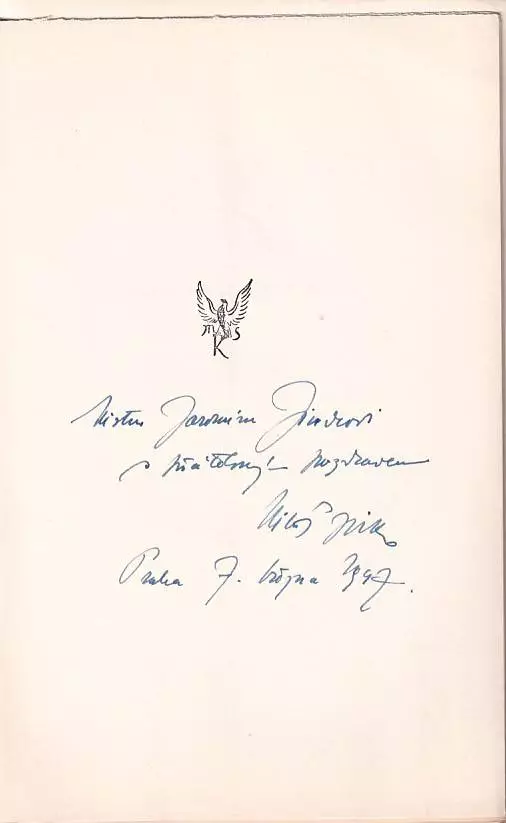 m S
K
Mistru Jaromíru Jindrovi
s přátelským pozdravem
Miloš Jirko
Praha 7. března 1947.